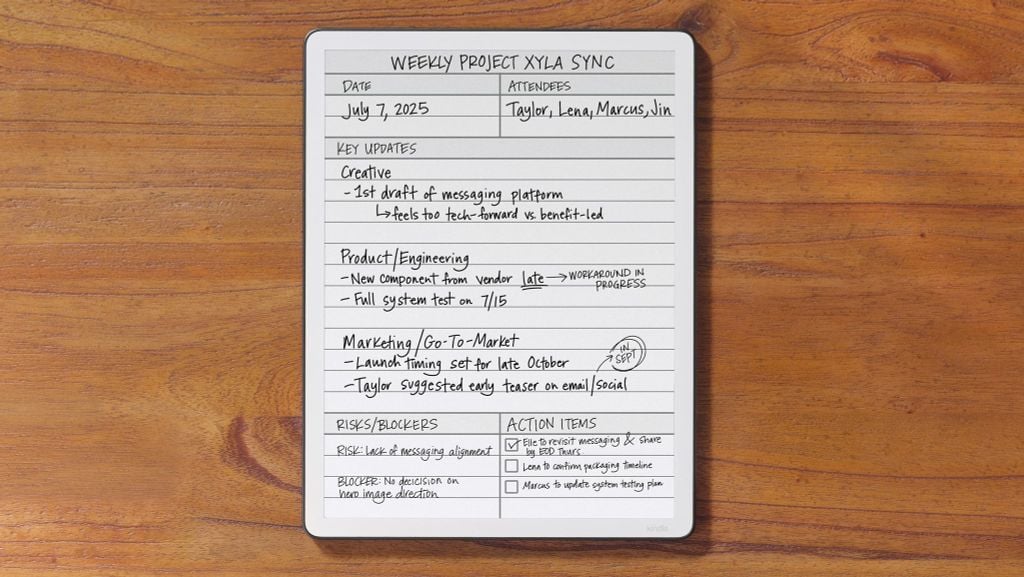 WEEKLY PROJECT XYLA SYNC
DATE
July 7, 2025
ATTENDEES
Taylor, Lena, Marcus, Jin
KEY UPDATES
Creative
- 1st draft of messaging platform
↳ feels too tech-forward vs. benefit-led
Product/Engineering
- New component from vendor late → WORKAROUND IN
PROGRESS
- Full system test on 7/15
Marketing/Go-To-Market
- Launch timing set for late October
- Taylor suggested early teaser on email/social
IN
SEPT
RISKS/BLOCKERS
RISK: Lack of messaging alignment
BLOCKER: No decicision on
hero image direction
ACTION ITEMS
Elle to revisit messaging & share
by EOD Thurs
Lena to confirm packaging timeline
Marcus to update system testing plan
kindle